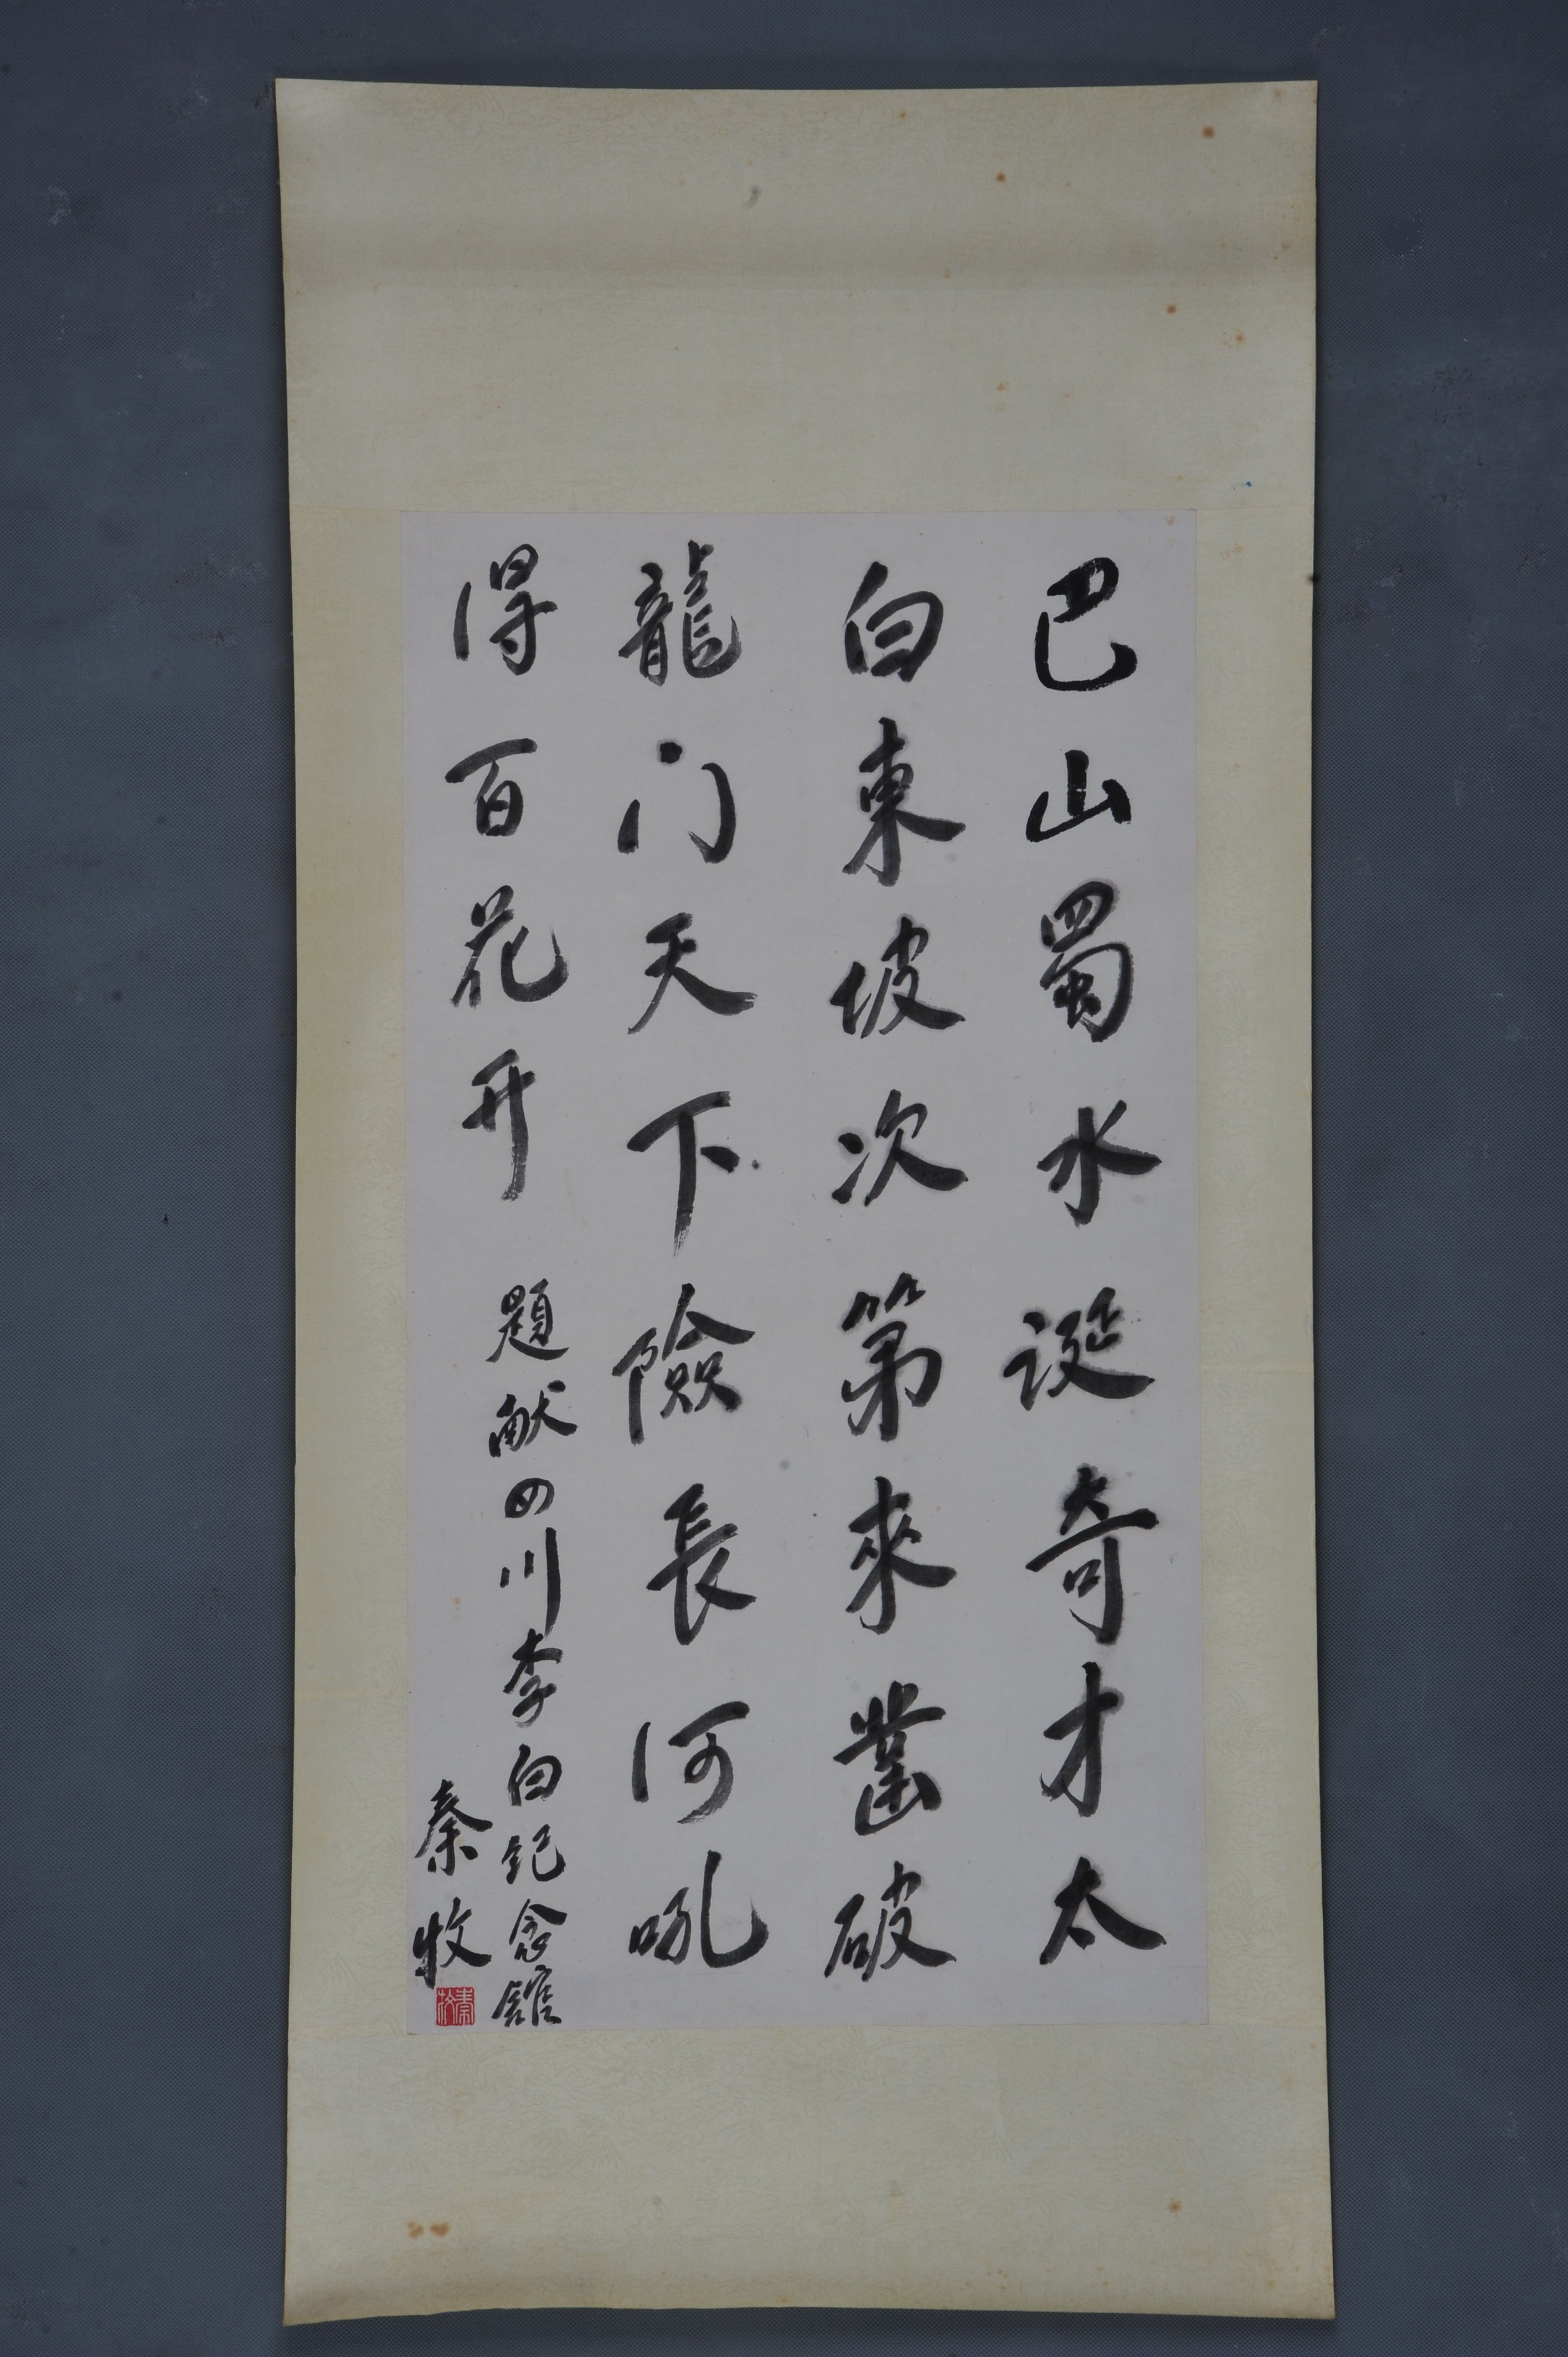 巴山蜀水誕奇才太
白東坡次第來凿破
龍门天下險長河吼
得百花开
題献四川李白紀念館
秦牧
秦牧